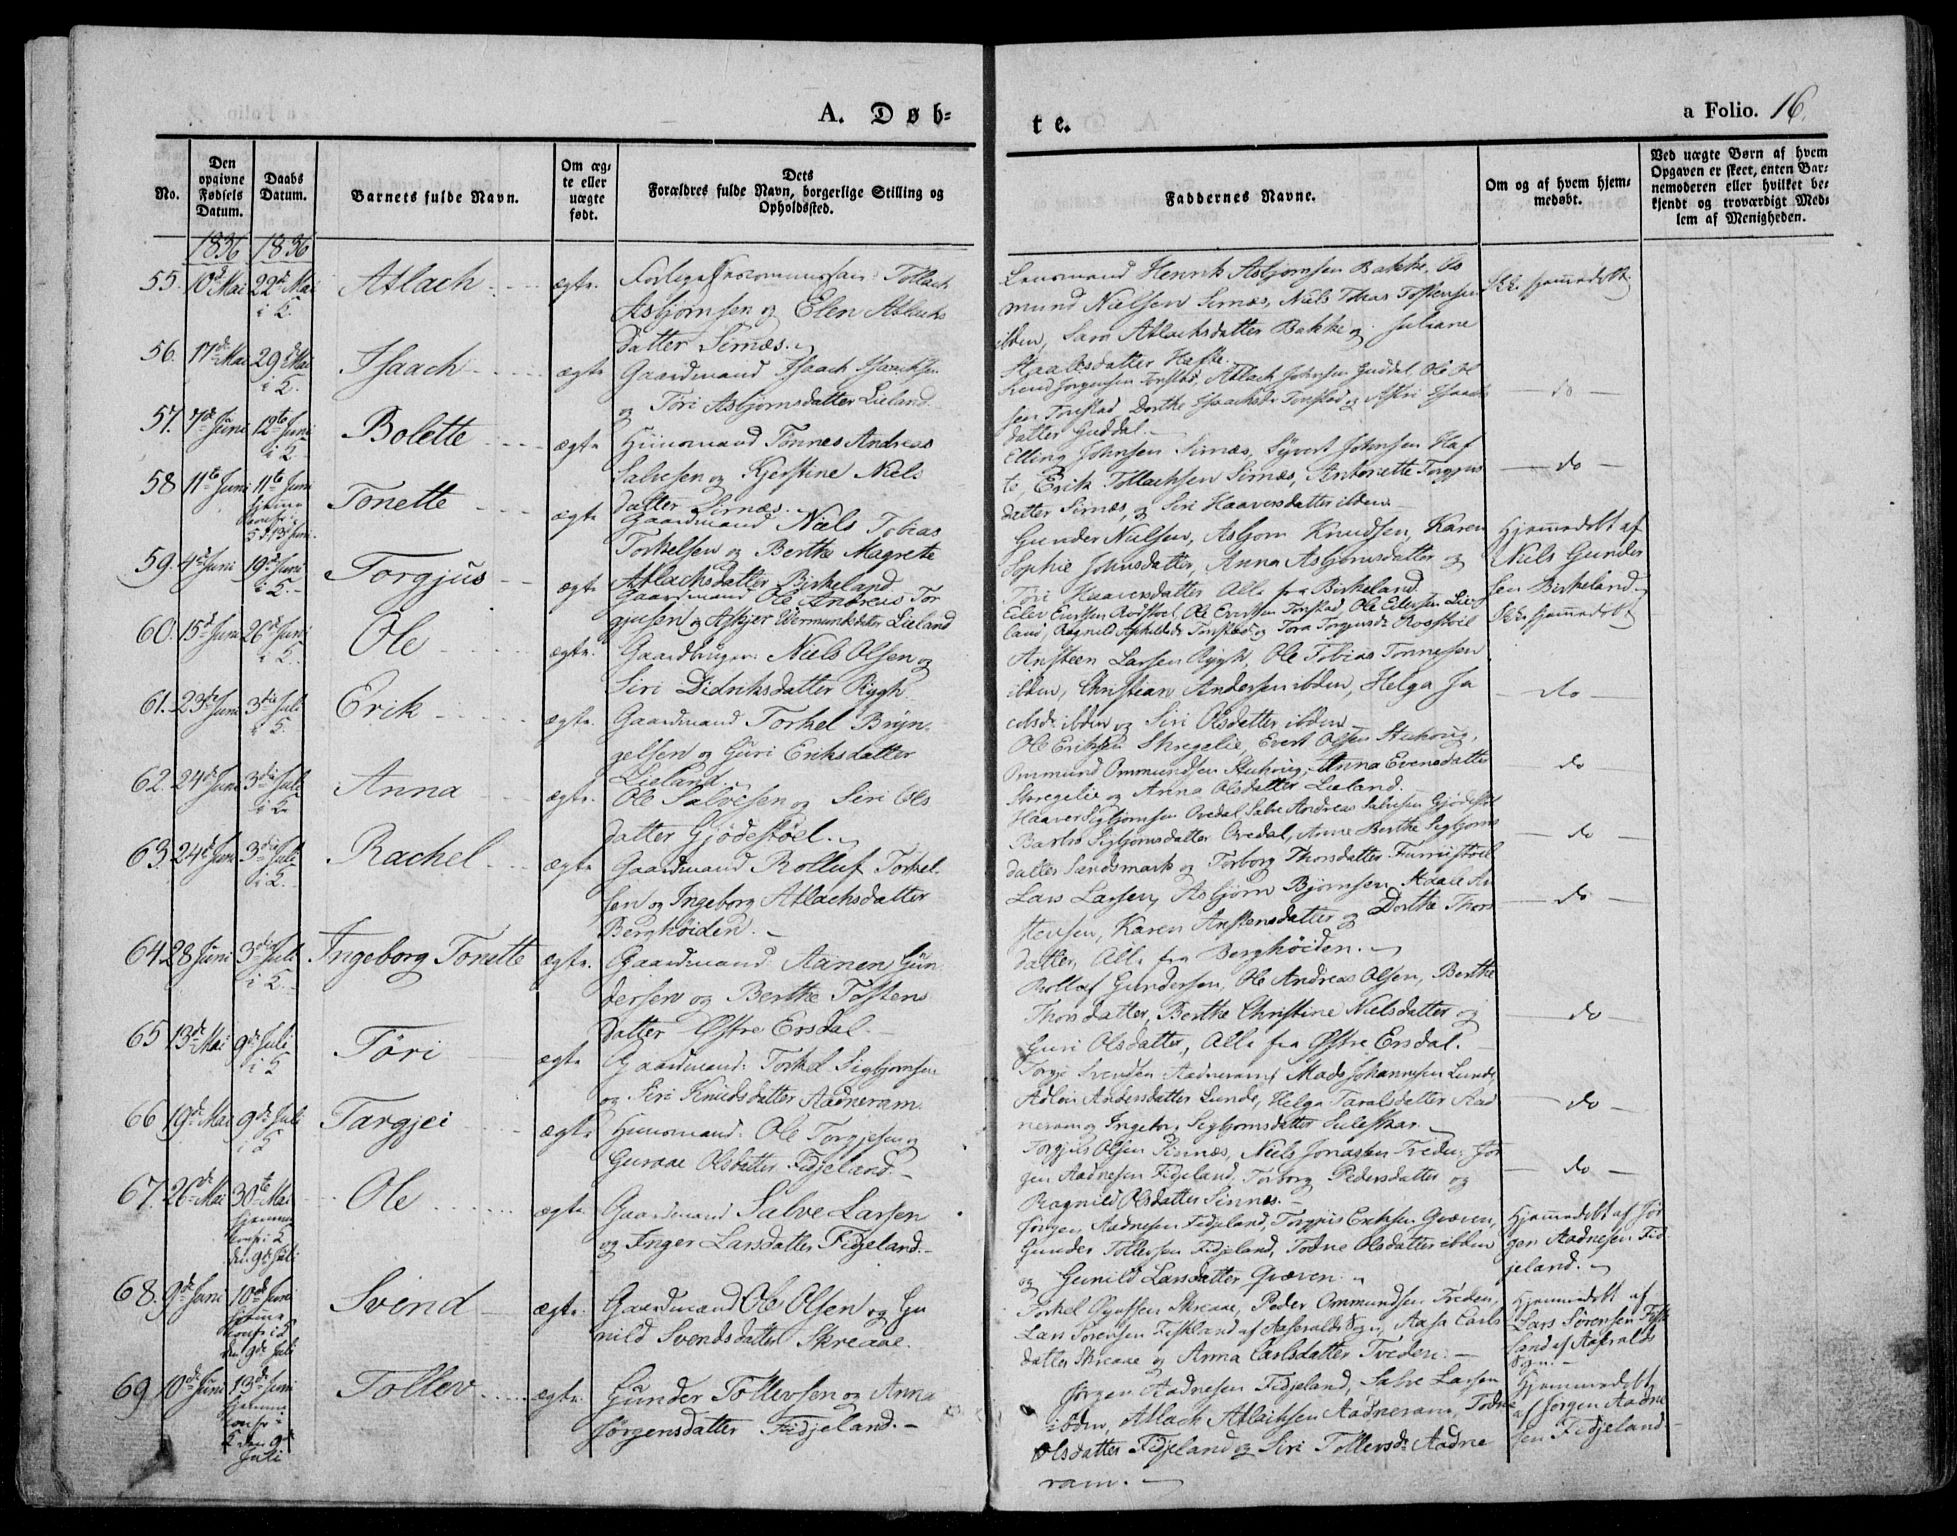 A. Døb-
te.
a Folio. 16.
No.
Den opgivne Fødsels Datum.
Daabs Datum.
Barnets fulde Navn.
Om ægte eller uægte født.
Dets Forældres fulde Navn, borgerlige Stilling og Opholdssted.
Faddernes Navne.
Om og af hvem hjemmedøbt.
Ved uægte Børn af hvem Opgaven er skeet, enten Barnemoderen eller hvilket bekjendt og troværdigt Medlem af Menigheden.
1836 1836
55. 10de Mai 22de Mai i K. Atlach ægte. Tollach
Asbjørnsen og Elen Atlachs
datter Sirnæs.
Lensmand Henrik Asbjørnsen Bakke, Os
mund Nielsen Sirnæs, Niels Thor Tostensen
ibden, Sara Atlachsdatter Bakke og Juliane
datter Hafte.
Ikke hjemmedøbt
56. 17de Mai 29de Mai i K. Isaach ægte Gaardmand Isaach
og Tori Asbjørnsdatter Lieland
Jørgensen Tonstad, Atlach Johnsen Guddal, Ole Ol
sen Tonstad, Dorthe Isaachsdr Tonstad og Astri Isaachs
datter Guddal.
do
57. 7de Juni 12te Juni i K. Bolette ægte Huusmand Tønnes Andreas
Salvesen og Kjerstine Niels
datter Sirnæs.
Elling Johnsen Sirnæs, Syvert Johnsen Haf
te, Erik Tollachsen Sirnæs, Antonette Torgjus
datter Sirnæs, og Siri Haaversdatter ibden
do
58 11te Juni 11te Juni Tonette ægte Gaardmand Niels Tobias
Torkelsen og Berthe Magrete
Atlachsdatter Birkeland
Gunder Nielsen, Asbjørn Knudsen, Karen
Sophie Johnsdatter, Anna Asbjørnsdatter og
Tori Haaversdatter Alle fra Birkeland.
Hjemmedøbt af
Niels Gunder
sen Birkeland
59. 4de Juni 19de Juni i K. Torgjus ægte Gaardmand Ole Andreas Tor
gjusen og Asbjer Vermundsdatter Lieland
Eilev Evertsen Rosstøel, Ole Evertsen Tonstad, Ole Eilertsen Lie
land, Ragnild Tonstad og Tora Torgjusdr Rosstøel
Ikke hjemmedøbt
60. 15de Juni 26de Juni i K. Ole ægte. Gaardbruger Niels Olsen og
Siri Didriksdatter Rygh
Ansteen Larsen Rygh, Ole Tobias Tonnesen
ibden, Christian Andersen ibden, Helga Ja
cobsdr ibden og Siri Olsdatter ibden
do
61. 23de Juni 3die Juli i K. Erik ægte. Gaardmand Torkel Bryn
gelsen og Guri Eriksdatter
Lieland
Ole Eriksen Skregelie, Evert Olsen Stuhoug,
Ommund Ommundsen Stuhoug, Anna Evensdatter
Skregelie og Anna Olsdatter Lieland.
do
62. 24de Juni 3die Juli i K. Anna ægte. Ole Salvesen og Siri Ols
datter Gjødestøel.
Haaver Sigbjørnsen Ovedal, Salve Andreas Salvesen Gjødestøl
Sigbjørnsdatter Ovedal, Anne Berthe Sigbjørns
datter Sandsmark og Torborg Thorsdatter
do
63. 24de Juni 3die Juli i K. Rachel ægte Gaardmand Rolluf Torkel
sen og Ingeborg Atlachsdatter
Berghøiden.
Lars Larsen, Asbjørn Bjørnsen, An
stensen, Karen Anstensdatter og Dorthe Thors
datter, Alle fra Berghøiden.
do
64. 28 Juni 3die Juli i K. Ingeborg Tonette ægte. Gaardmand Aanen Gun
dersen og Berthe Tostens
datter Østre Ersdal.
Rolluf Gundersen, Ole Andreas Olsen, Berthe
Thorsdatter, Berthe Christine Nielsdatter og
Guri Olsdatter, Alle fra Østre Ersdal.
do
65 13de Mai 9de Juli i K Tori ægte Gaardmand Torkel Sigbjørnsen
og Siri Knudsdatter Aadneram.
Torgi Svendsen Aadneram, Mads Johannesen Lunde,
Andersdatter Lunde, Helga Taralsdatter Aad
neram og Ingebor Sigbjørnsdatter Suleskar.
do
66 19de Mai 9de Juli i K Targjei ægte Huusmand Ole Torgjesen og
Guraae Olsdatter Fidjeland.
Torgjus Olsen Sinnæs, Niels Jonassen Tveden, Jør
gen Aadnesen Fidjeland, Torborg Pedersdatter og
Ragnild Olsdatter Sinnes.
do
67. 26de Mai 30te Mai den 9de Juli Ole ægte Gaardmand Salve Larsen
og Inger Larsdatter Fidjeland.
Jørgen Aadnesen Fidjeland, Torgjus Eriksen Qvæven,
Gunder Tollevsen Fidjeland, Todne Olsdatter ibden
og Gunild Larsdatter Qvæven.
Hjemmedøbt af Jør
gen Aadnesen Fid
jeland.
68. 9de Juni 10de Juni 9de Juli Svend ægte. Gaardmand Ole Olsen og Gu
nild Svendsdatter Skreaae.
Torkel Skreaae, Peder Ommundsen Tveden,
Lars Sørensen Fiskland af Aaseralds Sogn, Aasa Carls
datter Skreaae og Anna Carlsdatter Tveden.
Hjemmedøbt af
Lars Sørensen Fisk
land af Aaseralds
Sogn.
69 10de Juni 13de Juni K den 9de Juli Tollev ægte. Gunder Tollevsen og Anna
Jørgensdatter Fidjeland.
Jørgen Aadnesen Fidjeland, Salve Larsen
ibden, Atlach Atlachsen Aadneram, Todne
Olsdatter Fidjeland og Siri Tollevsdr Aadne
ram.
Hjemmedøbt
af Jørgen Aadne
sen Fidjeland